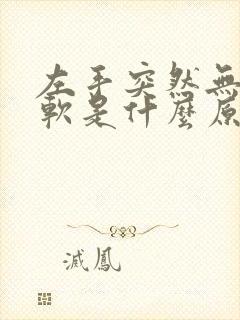 左手突然無
軟是什麼原
滅鳳